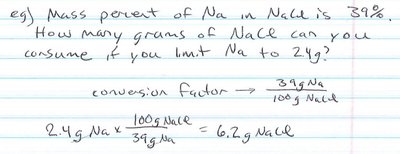 eg) Mass percent of Na in NaCl is 39%.
How many grams of NaCl can you
consume if you limit Na to 2.4g?
conversion factor → 39g Na / 100g NaCl
2.4g Na x 100g NaCl / 39g Na = 6.2g NaCl